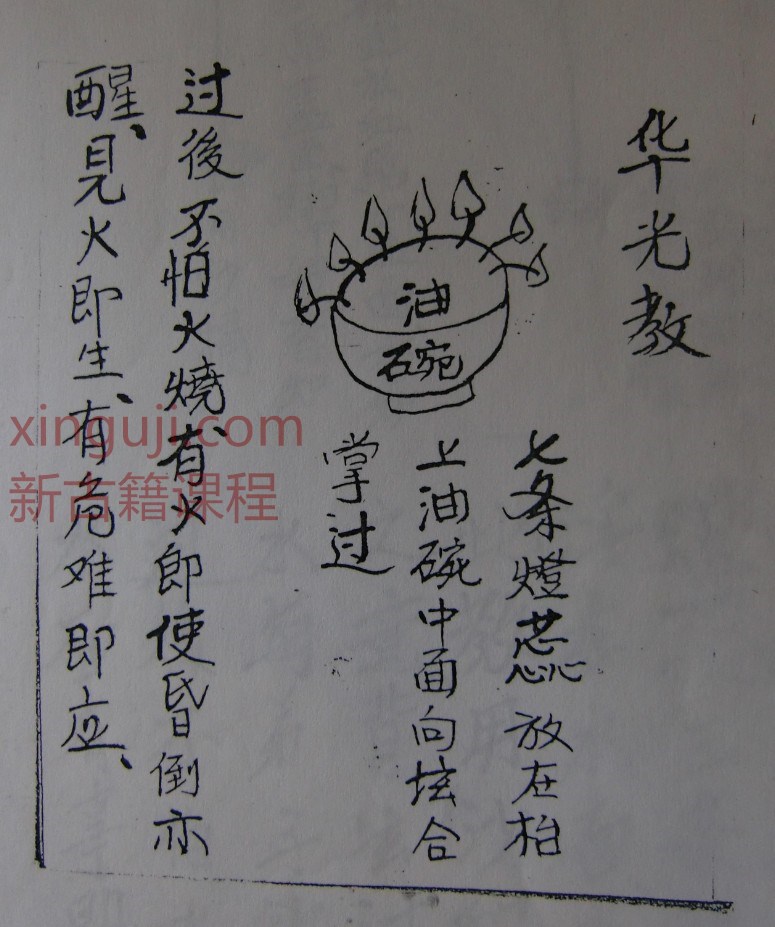 华光教
油
碗
七条燈蕊放在枱
上油碗中面向坛合
掌过
过後不怕火燒、有火即使昏倒亦
醒、見火即生、有危难即应、
xinguji.com
新古籍课程